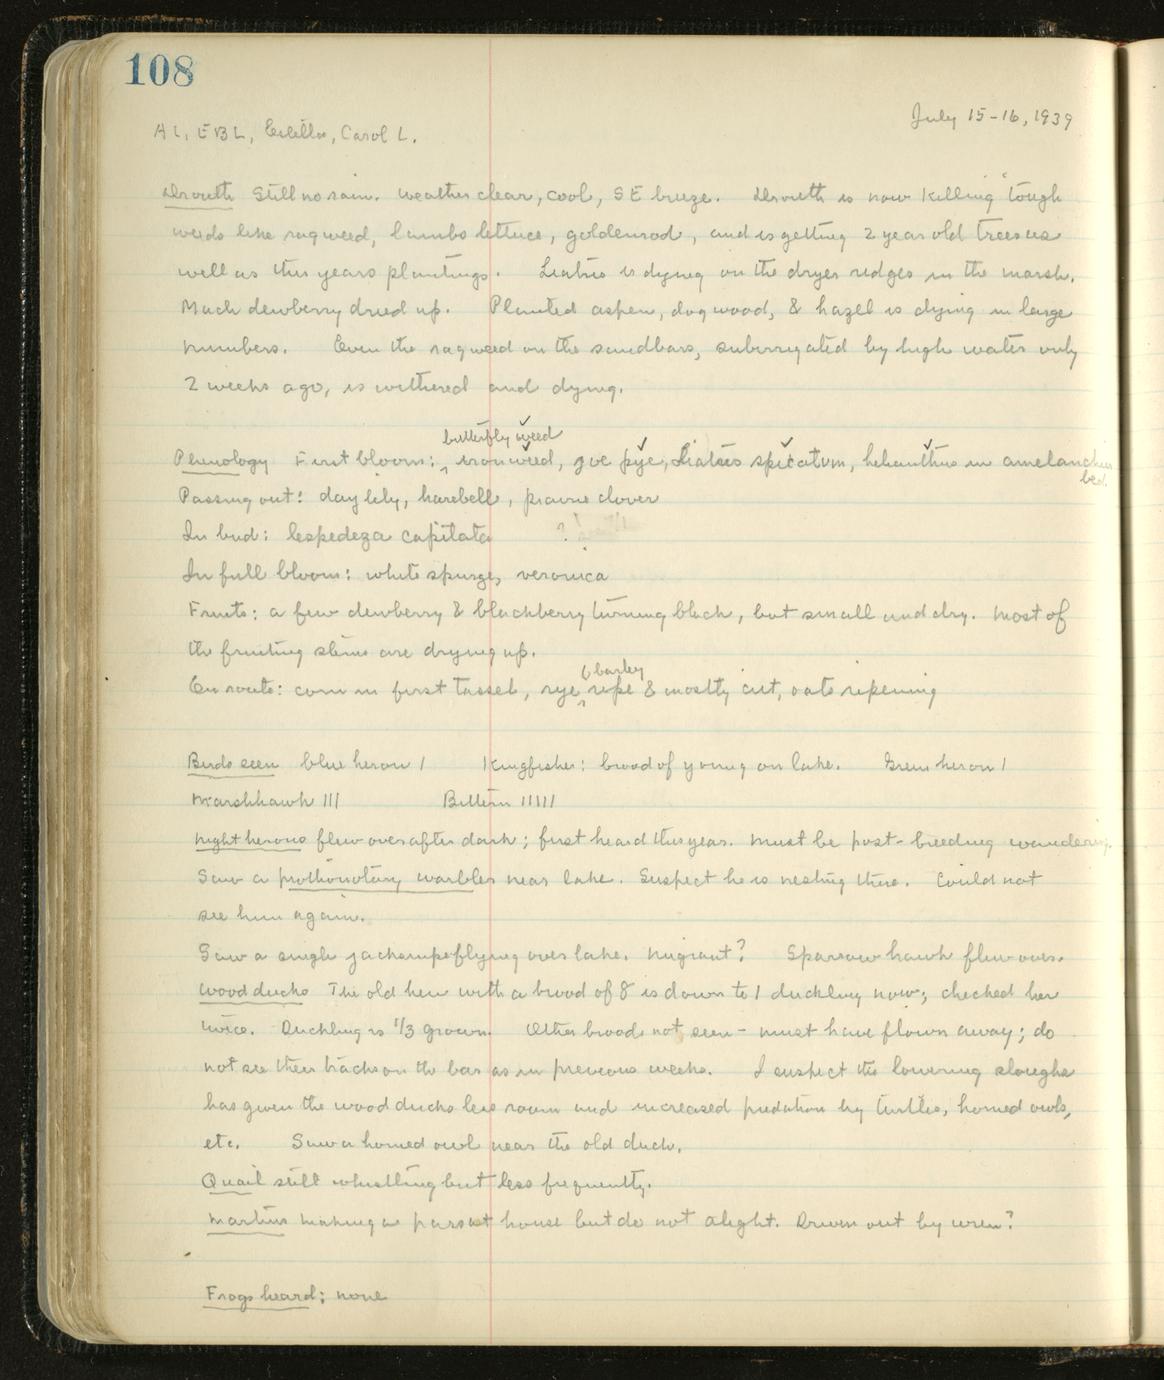 108
July 15-16, 1939
AL, EBL, Estella, Carol L.
Drouth Still no rain. Weather clear, cool, SE breeze. Drouth is now killing "tough
weeds like ragweed, lambs lettuce, goldenrod, and is getting 2 year old trees as
well as this years plantings. Liatris is dying on the dryer ridges in the marsh.
Much dewberry dried up. Planted aspen, dogwood, & hazel is dying in large
numbers. Even the ragweed on the sandbars, subirrigated by high water only
2 weeks ago, is withered and dying.
butterfly weed
Phenology First bloom: ironweed, joe pye, Liatris spicatum, helianthus in amelanchier
bed.
Passing out: day lily, harebell, prairie clover
In bud: lespedeza capitata ?
In full bloom: white spurge, veronica
Fruits: a few dewberry & blackberry turning black, but small and dry. Most of
the fruiting stems are drying up.
& barley
En route: corn in first tassel, rye ripe & mostly cut, oats ripening
Birds seen blue heron 1 Kingfisher: brood of young on lake. Green heron 1
Marshhawk III Bittern IIIII
Night herons flew over after dark; first heard this year. Must be post-breeding wandering.
Saw a prothonotary warbler near lake. Suspect he is nesting there. Could not
see him again.
Saw a single jacksnipe flying over lake. Migrant? Sparrow hawk flew over.
Wood ducks The old hen with a brood of 8 is down to 1 duckling now; checked her
twice. Duckling is 1/3 grown. Other broods not seen - must have flown away; do
not see their tracks on the bar as in previous weeks. I suspect the lowering sloughs
has given the wood ducks less room and increased predation by turtles, horned owls,
etc. Saw a horned owl near the old duck.
Quail still whistling but less frequently.
Martins making a pass at house but do not alight. Driven out by wren?
Frogs heard: none